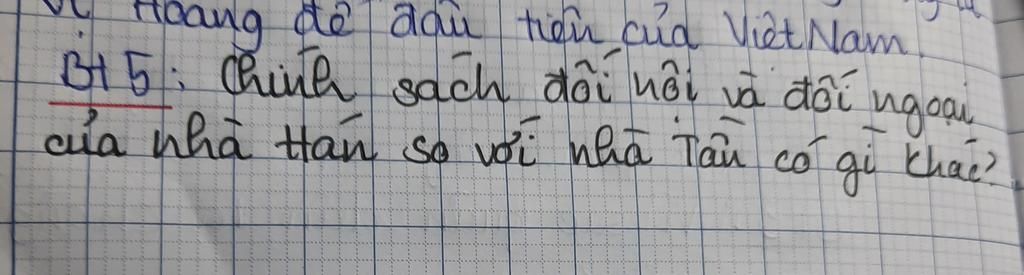 Hoàng đế đầu tiên của Việt Nam
BT 5: Chính sách đối nội và đối ngoại
của nhà Hán so với nhà Tần có gì khác?